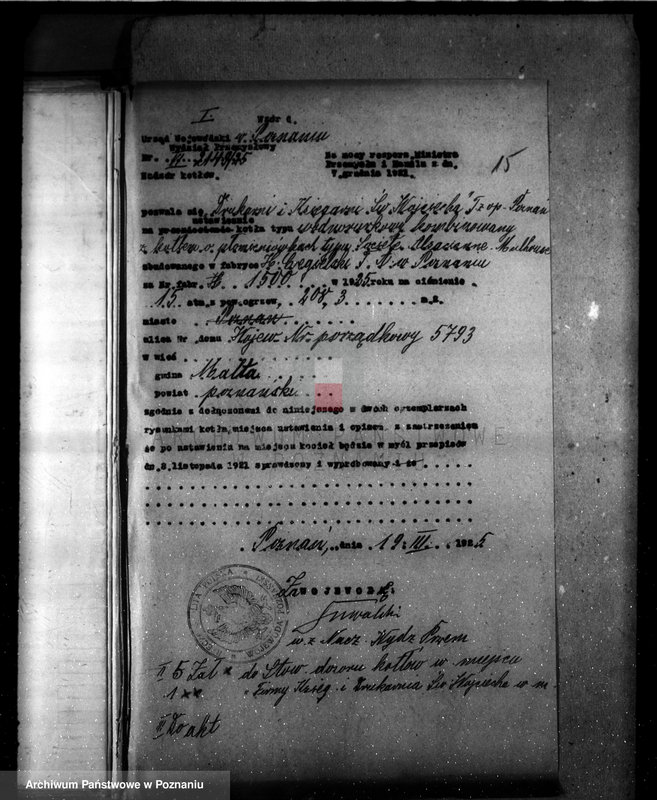 I
Wzór d.
Urząd Wojewódzki w Poznaniu
Wydział Przemysłowy
Nr. 2143/25
Nadzór kotłów.
Na mocy rozporz. Ministra
Przemysłu i Handlu z dn.
7 grudnia 1921.
15
pozwala się Drukarni i Księgarni Św. Wojciecha T z o p. Poznań
ustawienie
na przeniesienie kotła typu wodnorurkowy kombinowany
z kotłem o płomieniówkach typu
zbudowanego w fabryce H. Cegielski T. A. w Poznaniu
za Nr. fabr. H. 1500 w 1925 roku na ciśnienie
15 atm. z pow. ogrzew. 208,3 m.2.
miasto Poznań
ulica Nr domu Nr. porządkowy 5793
w wsi
gmina Malta
powiat poznański
zgodnie z dołączonemi do niniejszego w dwóch egzemplarzach
rysunkami kotła, miejsca ustawienia i opisem z zastrzeżeniem
że po ustawieniu na miejscu kocioł będzie w myśl przepisów
dn. 8. listopada 1921 sprawdzony i wypróbowany i że
Poznań, dnia 19. III. 1925
Za WOJEWODĘ:
w. z. Nacz. Wydz. Przem
II 5 Zał x do Stow. dozoru kotłów w miejscu
1 " x " Firmy Księg. i Drukarnia Św Wojciecha w m.
III Do akt
ARCHIWUM PAŃSTWOWE
W POZNANIU
Archiwum Państwowe w Poznaniu